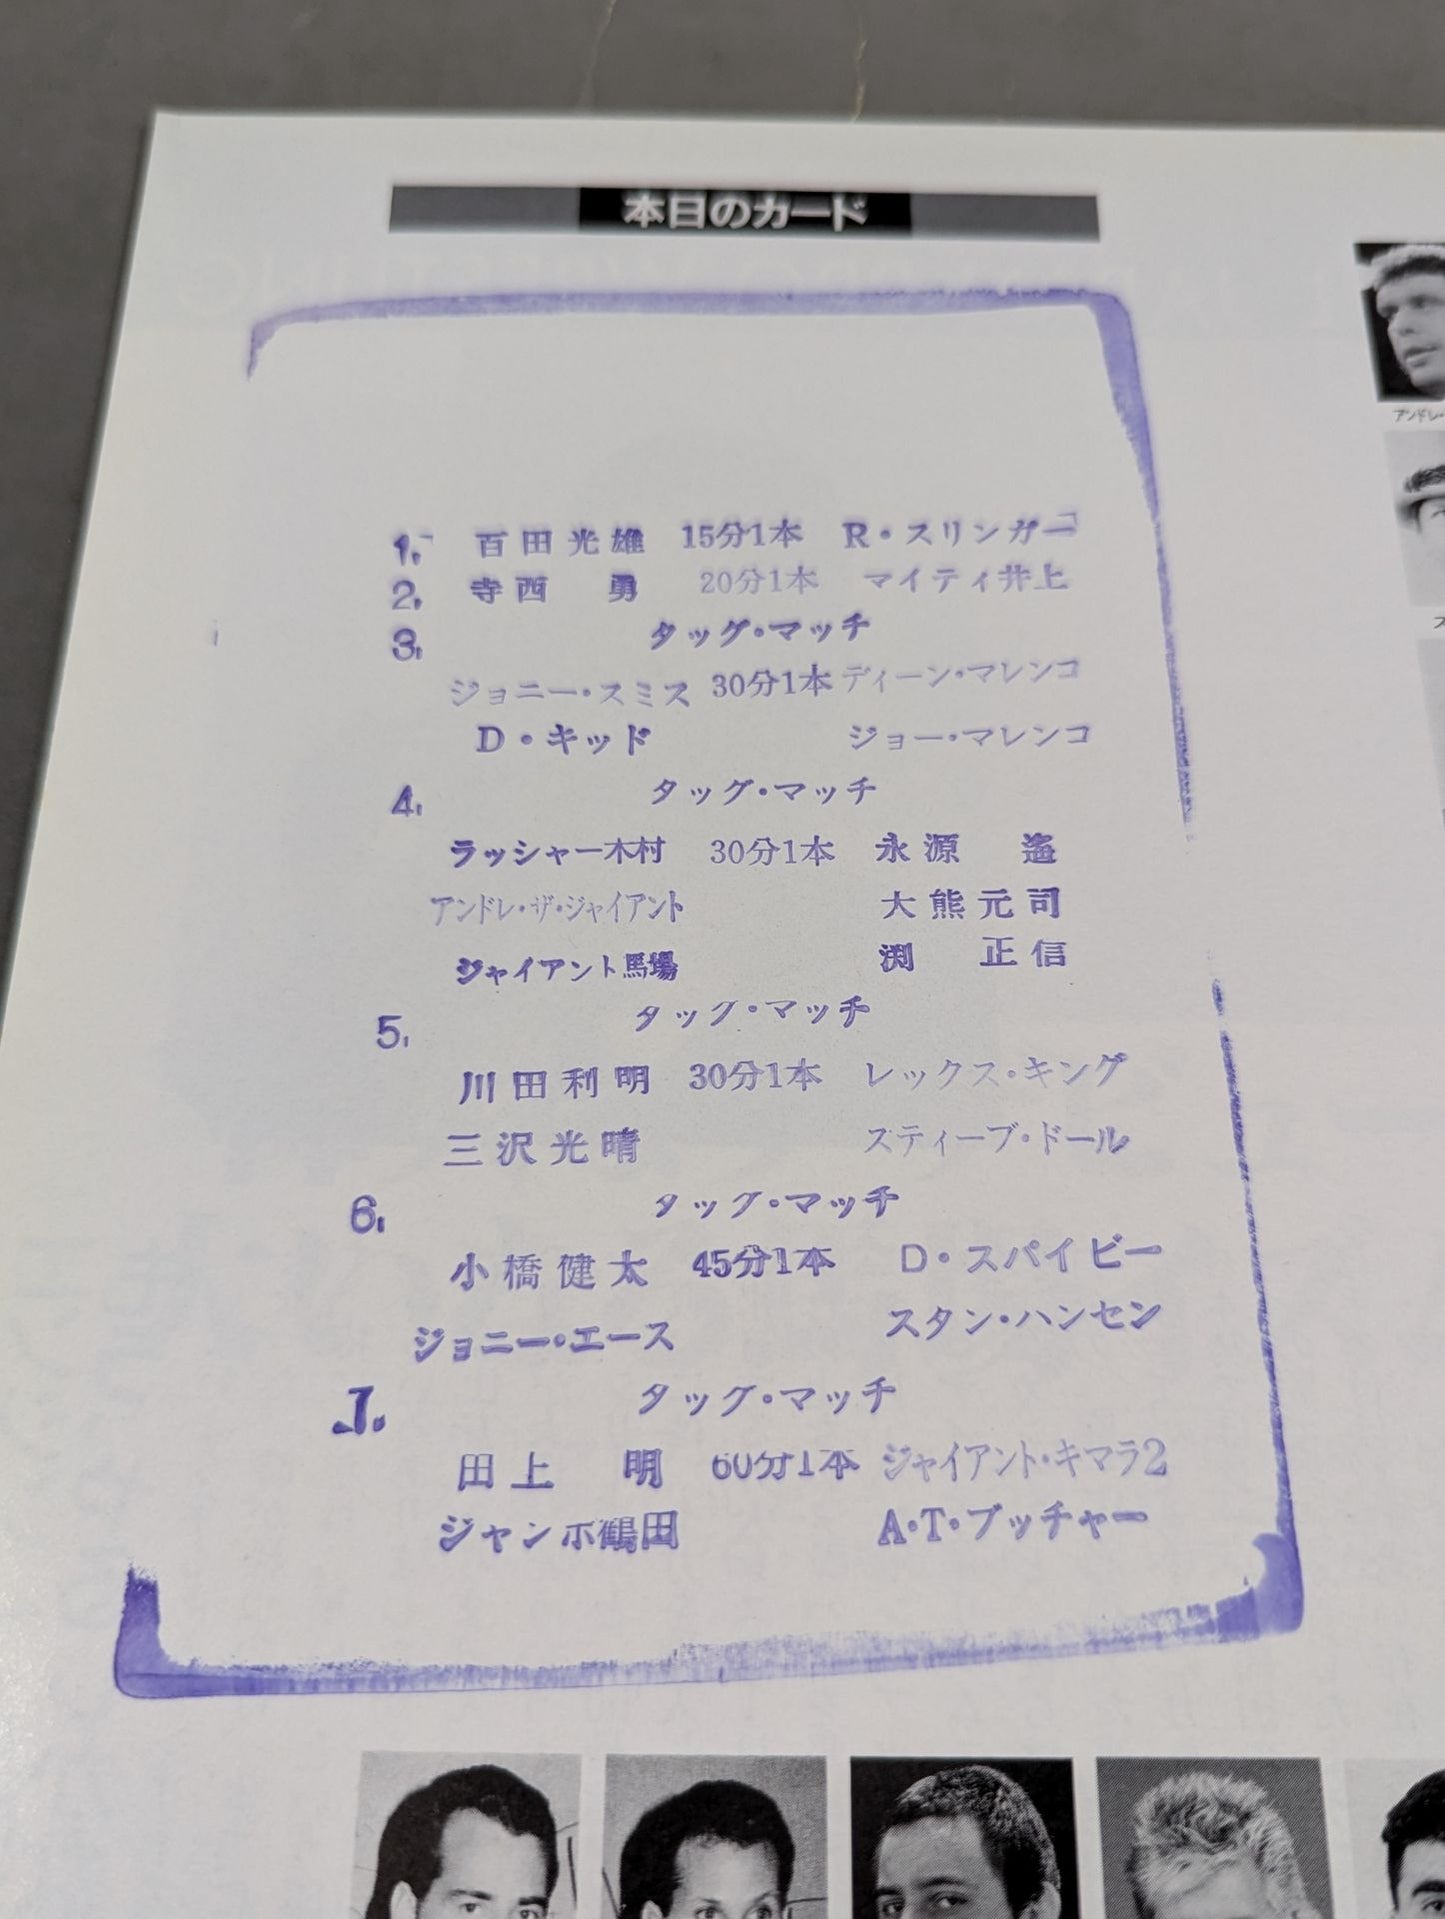 本日のカード
1. 百田光雄 15分1本 R・スリンガー
2. 寺西 勇 20分1本 マイティ井上
3. タッグ・マッチ
ジョニー・スミス 30分1本 ディーン・マレンコ
D・キッド ジョー・マレンコ
4. タッグ・マッチ
ラッシャー木村 30分1本 永源 遙
アンドレ・ザ・ジャイアント 大熊元司
ジャイアント馬場 渕 正信
5. タッグ・マッチ
川田利明 30分1本 レックス・キング
三沢光晴 スティーブ・ドール
6. タッグ・マッチ
小橋健太 45分1本 D・スパイビー
ジョニー・エース スタン・ハンセン
7. タッグ・マッチ
田上 明 60分1本 ジャイアント・キマラ2
ジャンボ鶴田 A・T・ブッチャー
アンドレ・